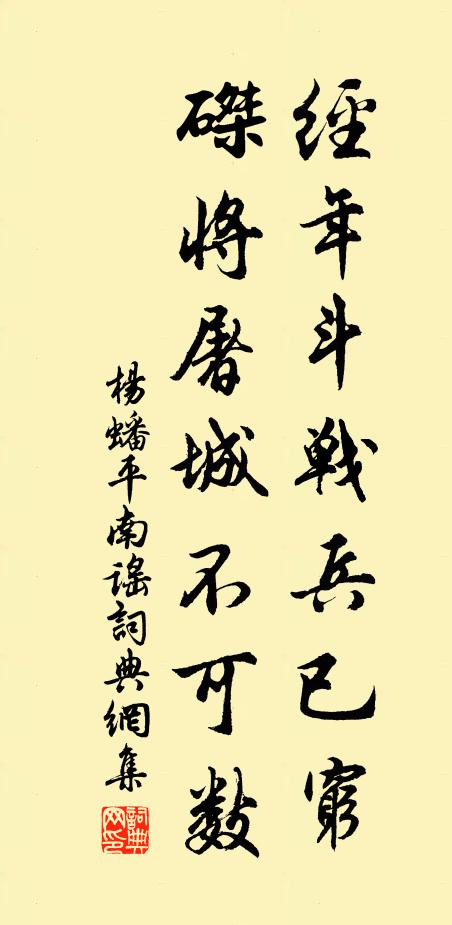 經年斗戰兵已窮
磔將屠城不可數
楊蟠平南謠詞典網集
詞典網印